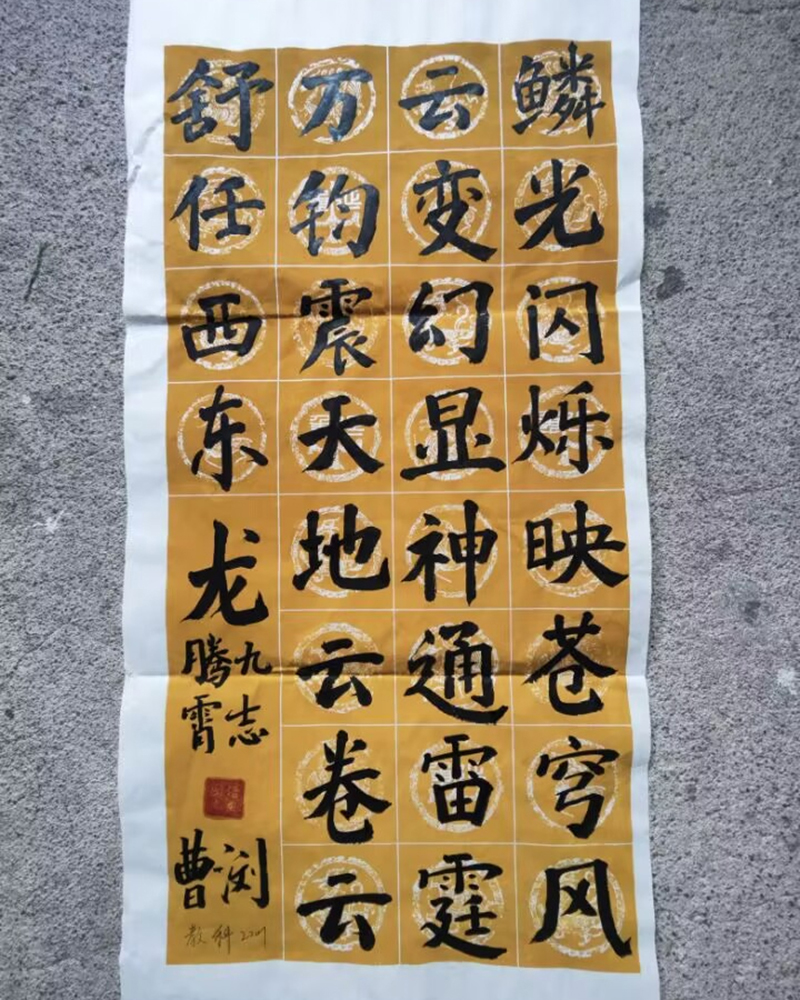 鳞光闪烁映苍穹风
云变幻显神通雷霆
万钧震天地云卷云
舒任西东龙
九志
腾霄
曹
教科